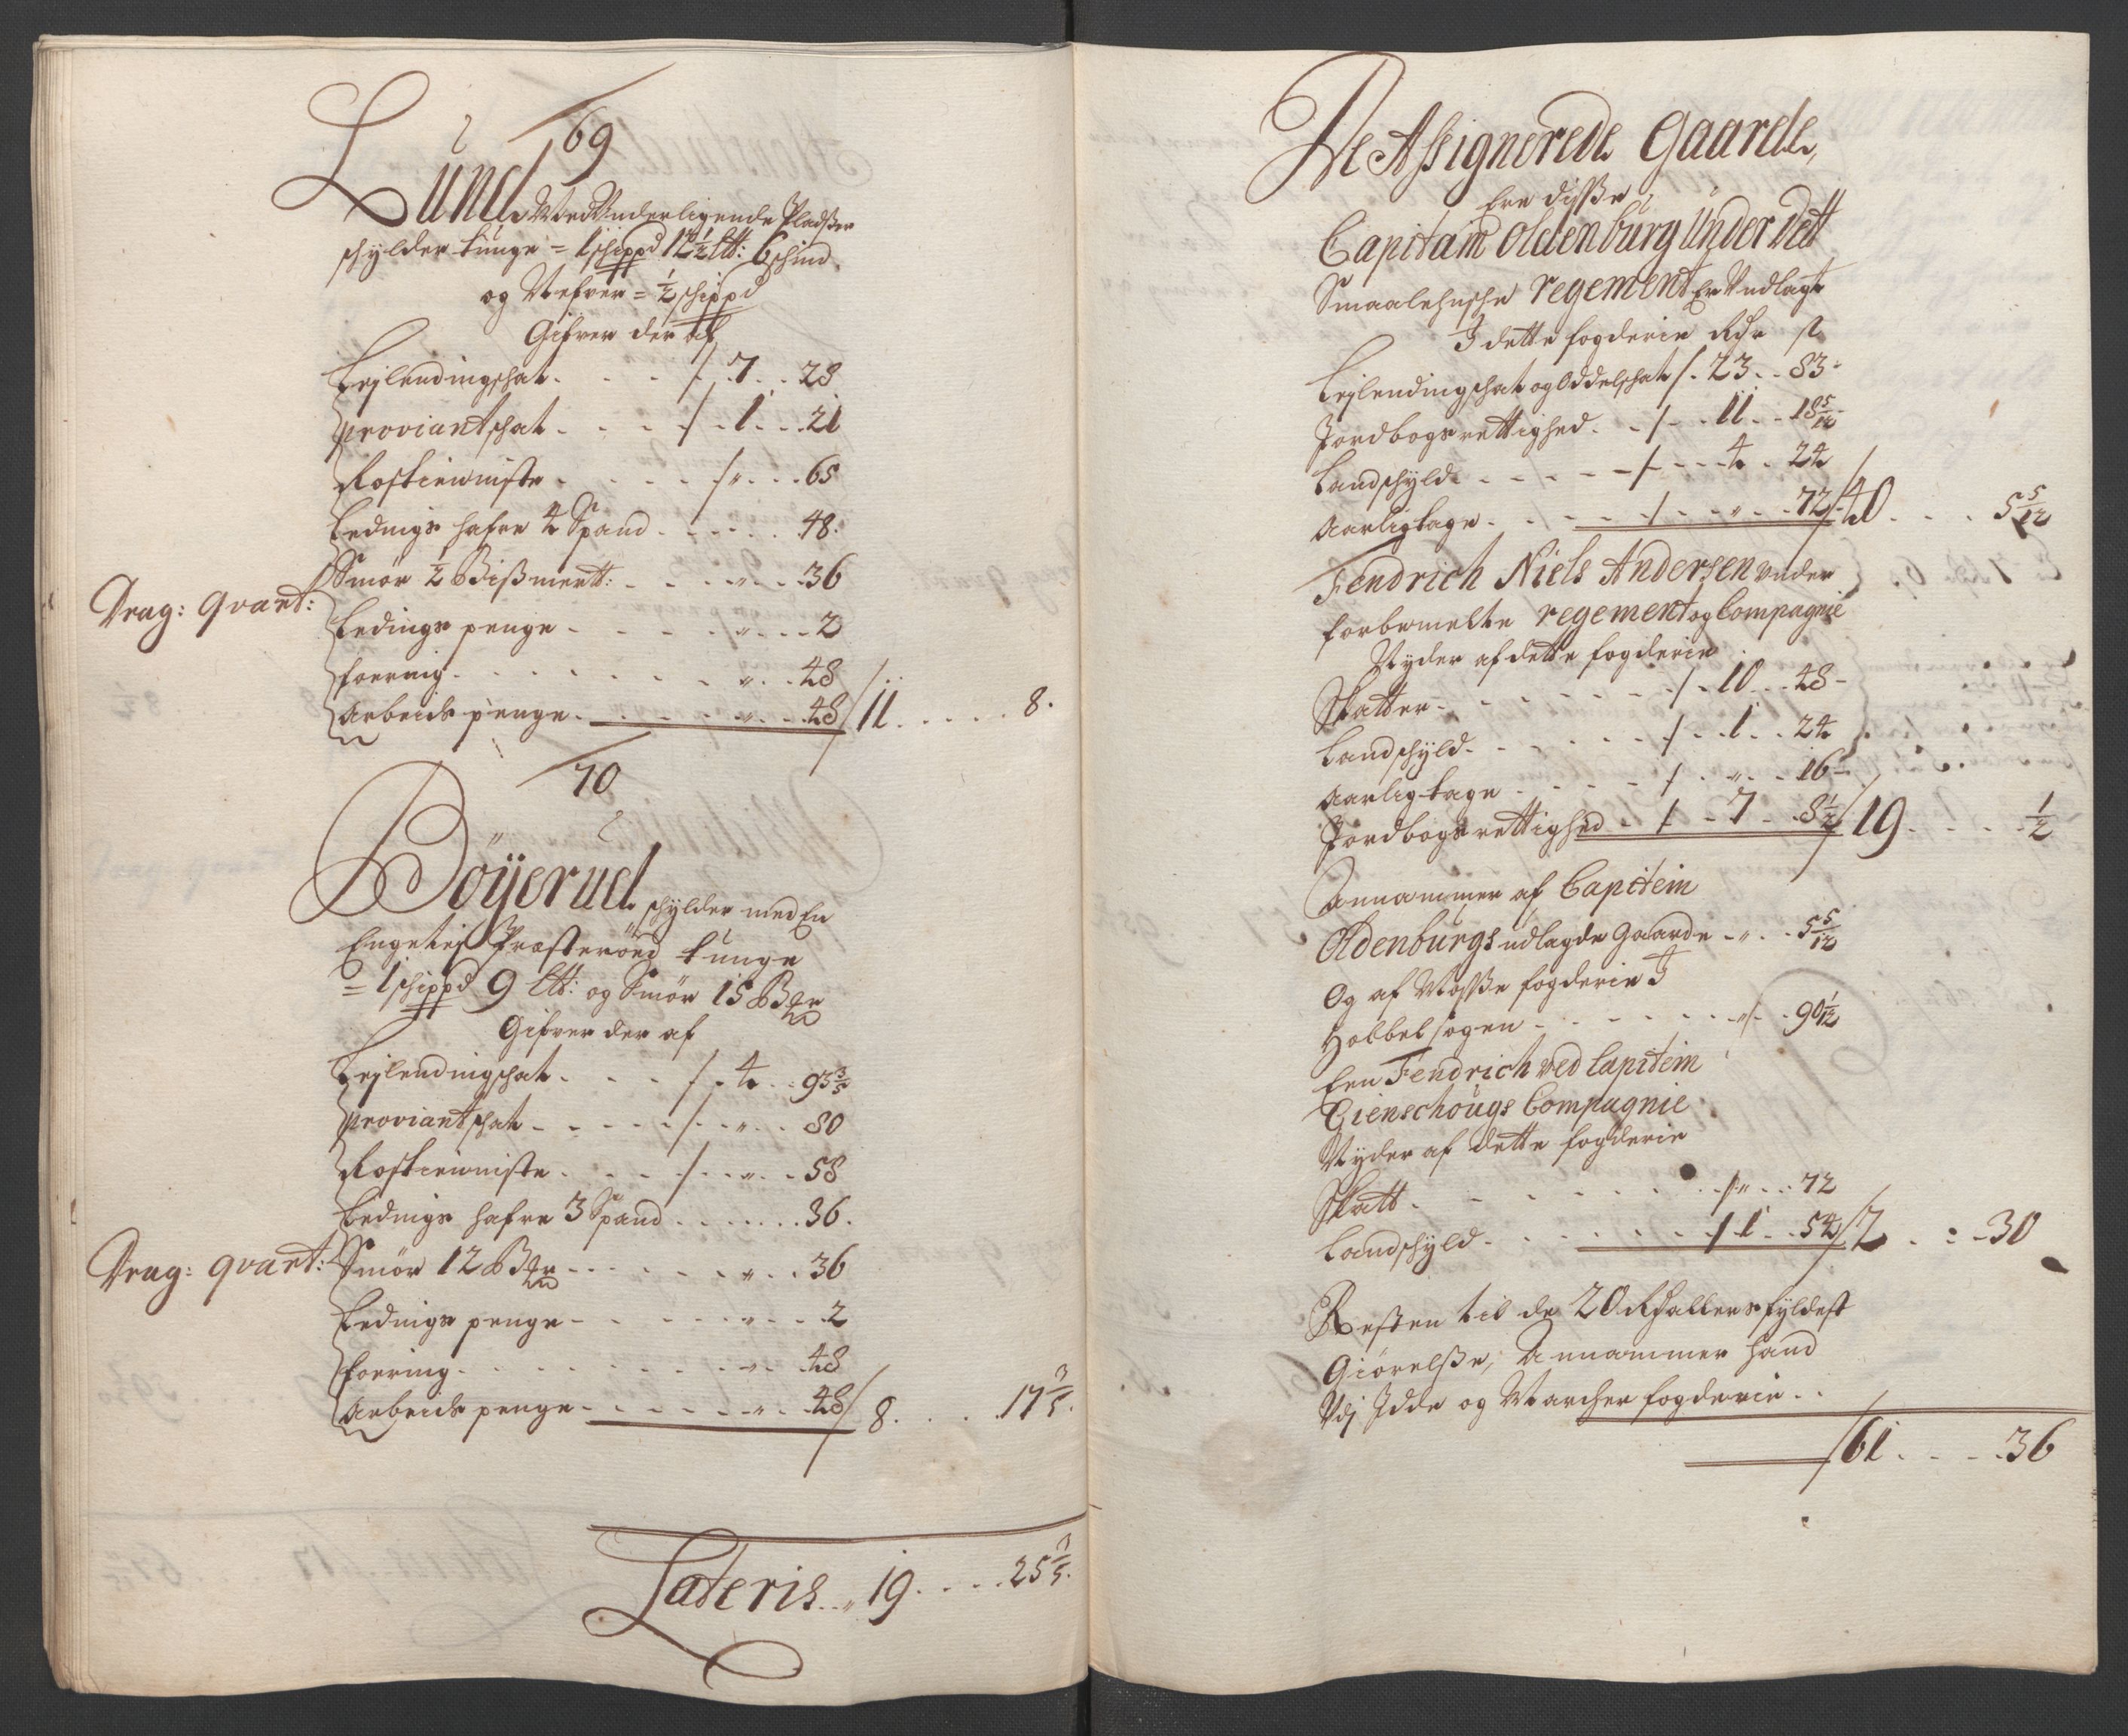 69
Lund Med Underligende Pladser
schylder tunge = 1 schippd 12½ ltt: 6 schind
og Nefver = ½ schippd
Gifver der af
Lejlendingschat 7 28
Proviantschat 1 21
Rostieniste 65
Lednings hafre 4 Spand 48
Drag: qvart: Smør ½ Bismertt: 36
Ledings penge 2
foering 48
Arbeids penge 48 / 11 8.
70
Böÿerud schylder med En
Engeteÿ Præsteröed tunge
= 1 schippd 9 ltt: og Smør 15 Bmr
Gifver der af
Lejlendingschat 4 93 3/5
Proviantschat 80
Rostieniste 58
Lednings hafre 3 Spand 36.
Drag: qvart: Smør 12 Bmr 36
Lednings penge 2
foering 48
Arbeids penge 48 / 8 17 3/5.
Lateris 19 25 3/5.
De Assignerede Gaarde,
Ere disse
Capitain Oldenburg Under Dett
Smaalehnsche regement Er Udlagt
I dette fogderie Rdr s
Lejlendingschat og Oddelschat 23 83
Jordbogsrettighed 11 18 5/12
Landschyld 4 24
Aarligtage 72 / 40 5 5/12
Fendrich Niels Andersen under
forbemelte regement og Compagnie
Nyder af dette fogderie
Skatter 10 48
Landschyld 1 24
Aarligtage 16
Jordbogsrettighed 7 8½ / 19 ½
Annammer af Capitein
Oldenburgs udlagde Gaarde 5 5/12
Og af Mosse fogderie I
Hobbel sogen 90 1/12
Een Fendrich ved Capitein
Gienschougs Compagnie
Nyder af dette fogderie
Skatt 72
Landschyld 1 54 / 2 30
Resten til de 20 Rdallers fyldest
Giörelse, Annammer hand
Udj Idde og Marcher fogderie
61 36